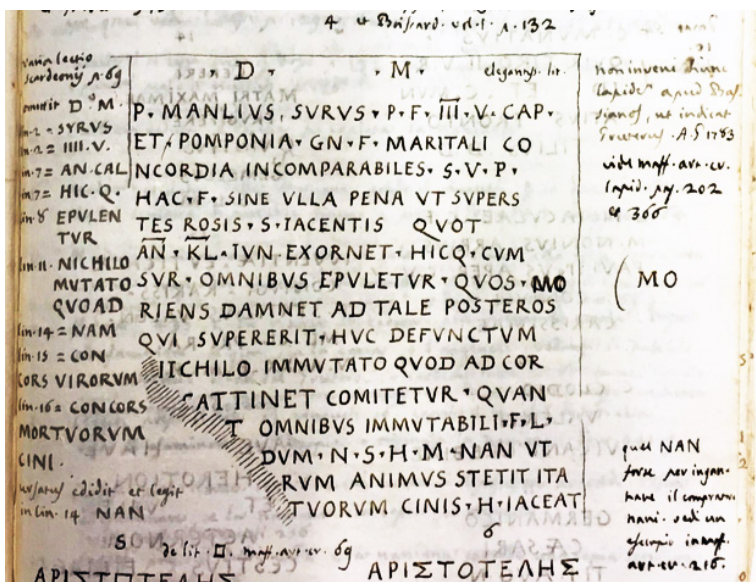 4 et Boissard. vol. 1. p. 132
varia lectio
scardeonij p. 69
omittit D. M.
lin. 2 = SYRVS
lin. 2 = IIII. V.
lin. 7 = AN. CAL
lin. 7 = HIC. Q.
lin. 8 EPVLEN
TVR
lin. 11. NICHILO
MVTATO
QVOAD
lin. 14 = NAM
lin. 15 = CON
CORS VIRORVM
lin. 16 = CONCORS
MORTVORVM
CINI.
ursatus edidit et legit
in lin. 14 NAN
D M elegantiss. lit.
P. MANLIVS, SVRVS P. F. III. V. CAP.
ET POMPONIA GN. F. MARITALI CO
NCORDIA INCOMPARABILES. S. V. P.
HAC. F. SINE VLLA PENA VT SVPERS
TES ROSIS. S. IACENTIS QVOT
AN. KL. IVN EXORNET. HICQ. CVM
SVR. OMNIBVS EPVLETVR. QVOS. MO
RIENS DAMNET AD TALE POSTEROS
QVI SVPERERIT. HVC DEFVNCTVM
IICHILO IMMVTATO QVOD AD COR
ATTINET COMITETVR. QVAN
T OMNIBVS IMMVTABILI. F. L.
DVM. N. S. H. M. NAN VT
RVM ANIMVS STETIT ITA
TVORVM CINIS. H. IACEAT
non inveni hunc
lapidem apud
ut indicat
A. S. 1783
vide maff. art. cr.
lapid. pag. 202
et 366
( MO
quel NAN
forse per ingan-
nare il
nani. vedi un
esempio in maff.
art. cr. 216.
5 de lit. maff. art. cr. 69
6
ΑΡΙΣΤΟΤΕΛΗΣ
ΑΡΙΣΤΟΤΕΛΗΣ